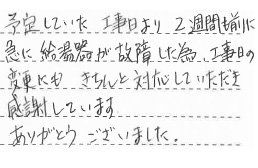 予定していた工事日より2週間前に
急に給湯器が故障した為、工事日の
変更にもきちんと対応していただき
感謝しています
ありがとうございました。